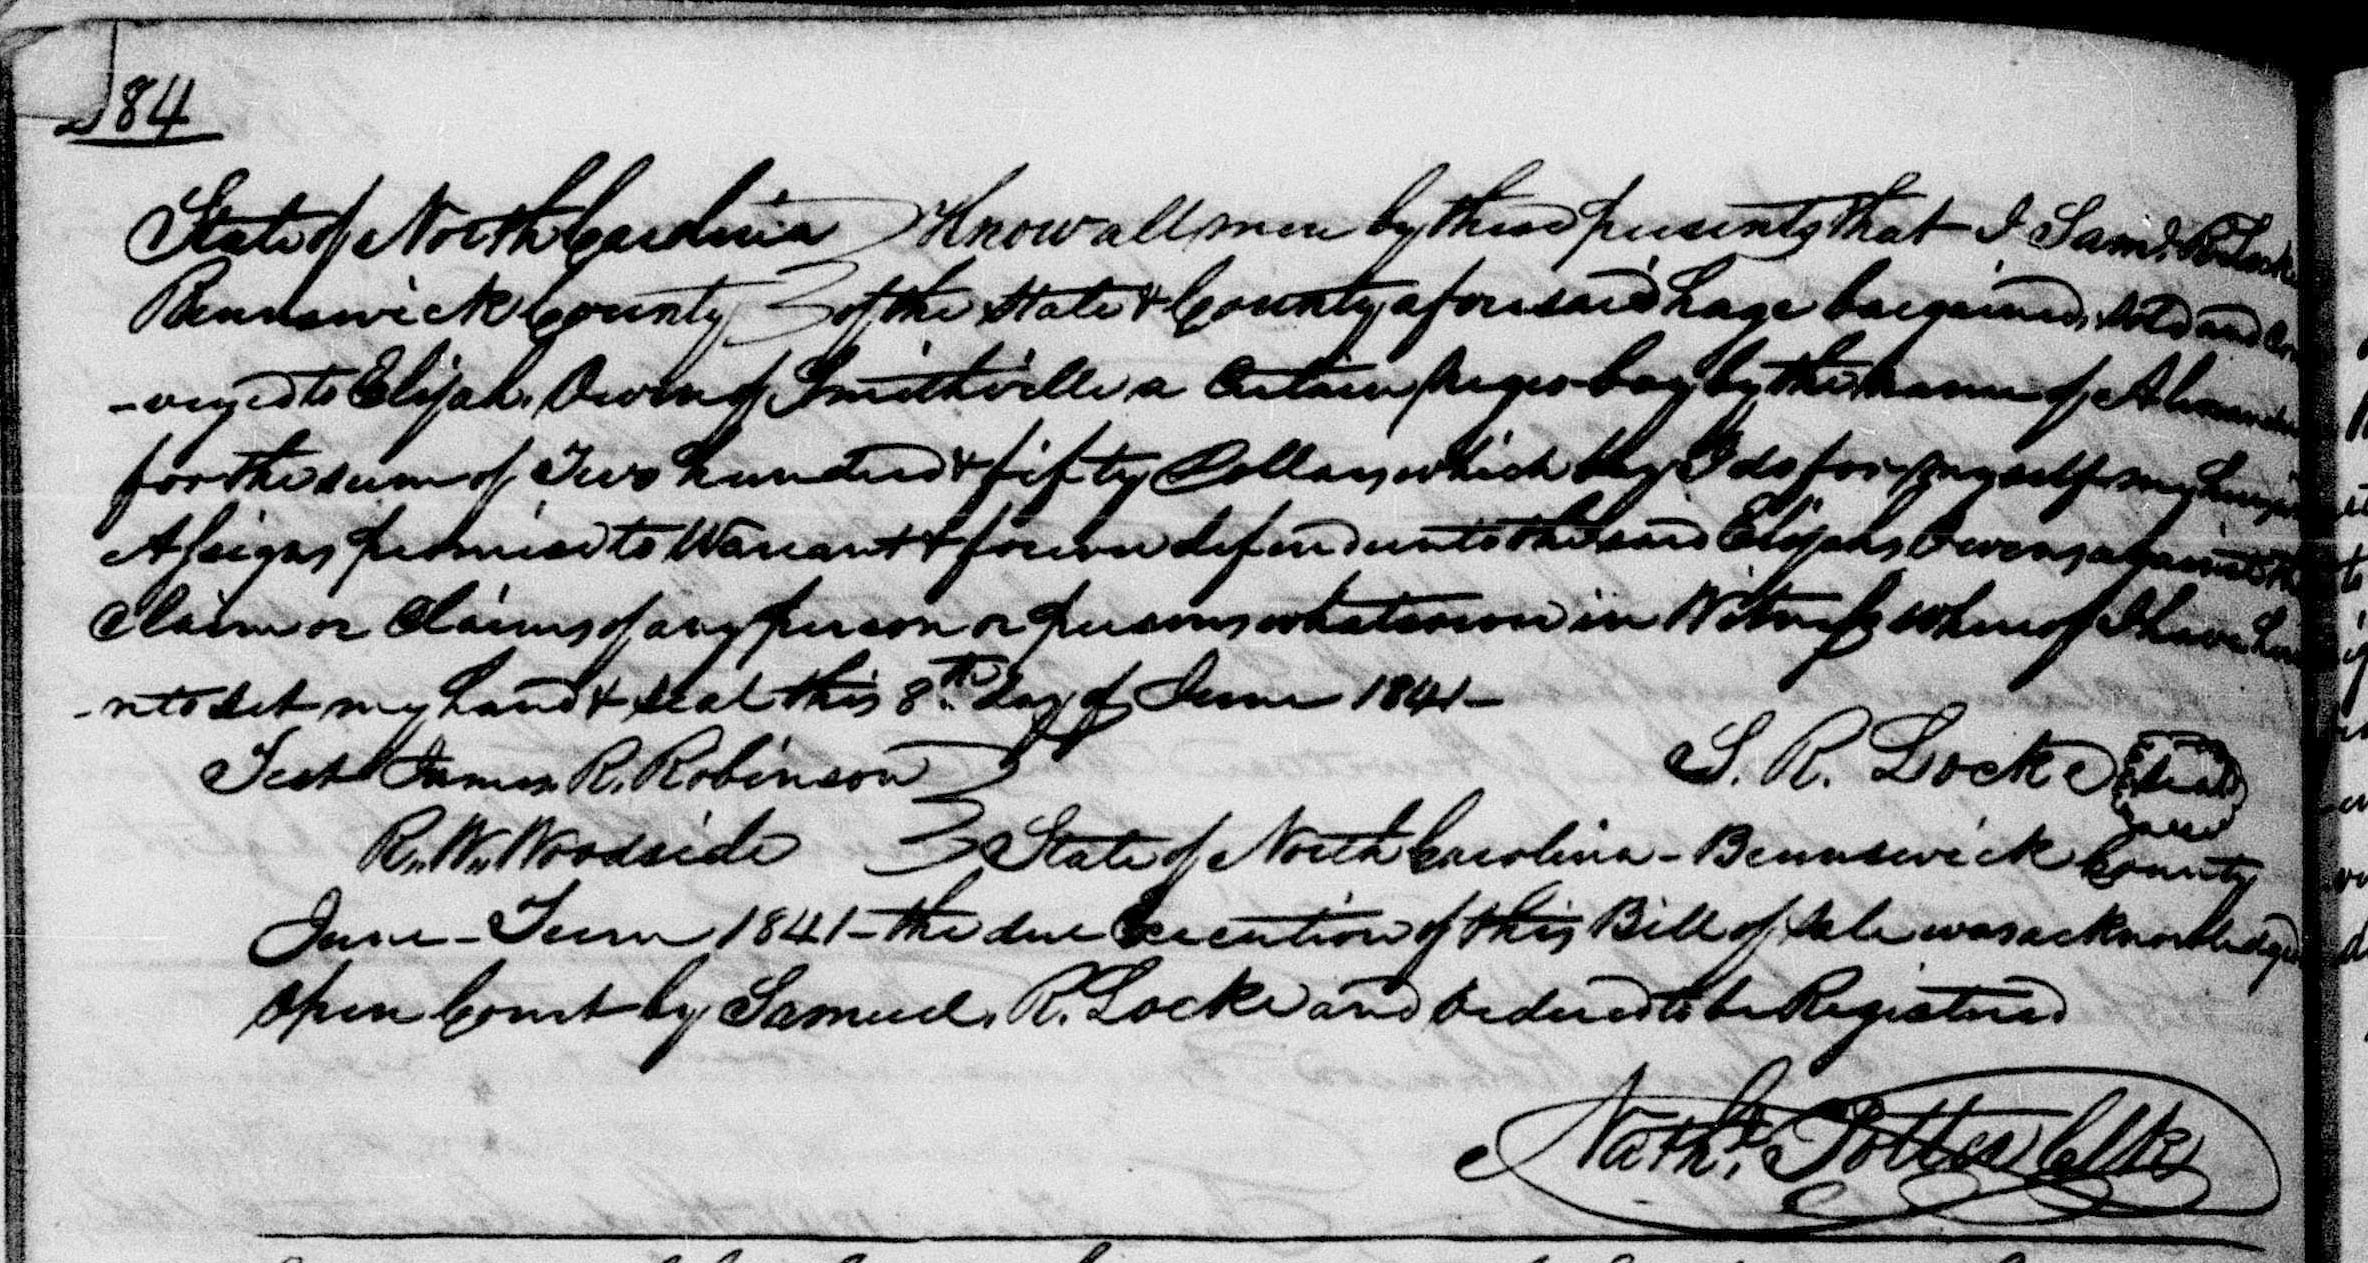 184
State of North Carolina } Know all men by these presents that I Saml. R. Locke
Brunswick County } of the State & County aforesaid have bargained, sold and con
-veyed to Elijah. Owen of Smithville a Certain Negro boy by the name of Alexander
for the sum of Two hundred & fifty Dollars which boy I do for myself my heirs
Assigns promise to Warrant & forever defend unto the said Elijah Owens against the
Claim or Claims of any person or persons whatsoever in Witness whereof I have her
-nto set my hand & seal this 8th day of June 1841-
Test James R. Robinson } S. R. Locke Seal
R. W. Woodside } State of North Carolina - Brunswick County
June - Term 1841 - the due Execution of this Bill of Sale was acknowledged
open Court by Samuel. R. Locke and Ordered to be Registered
Nathl. Potter Clk